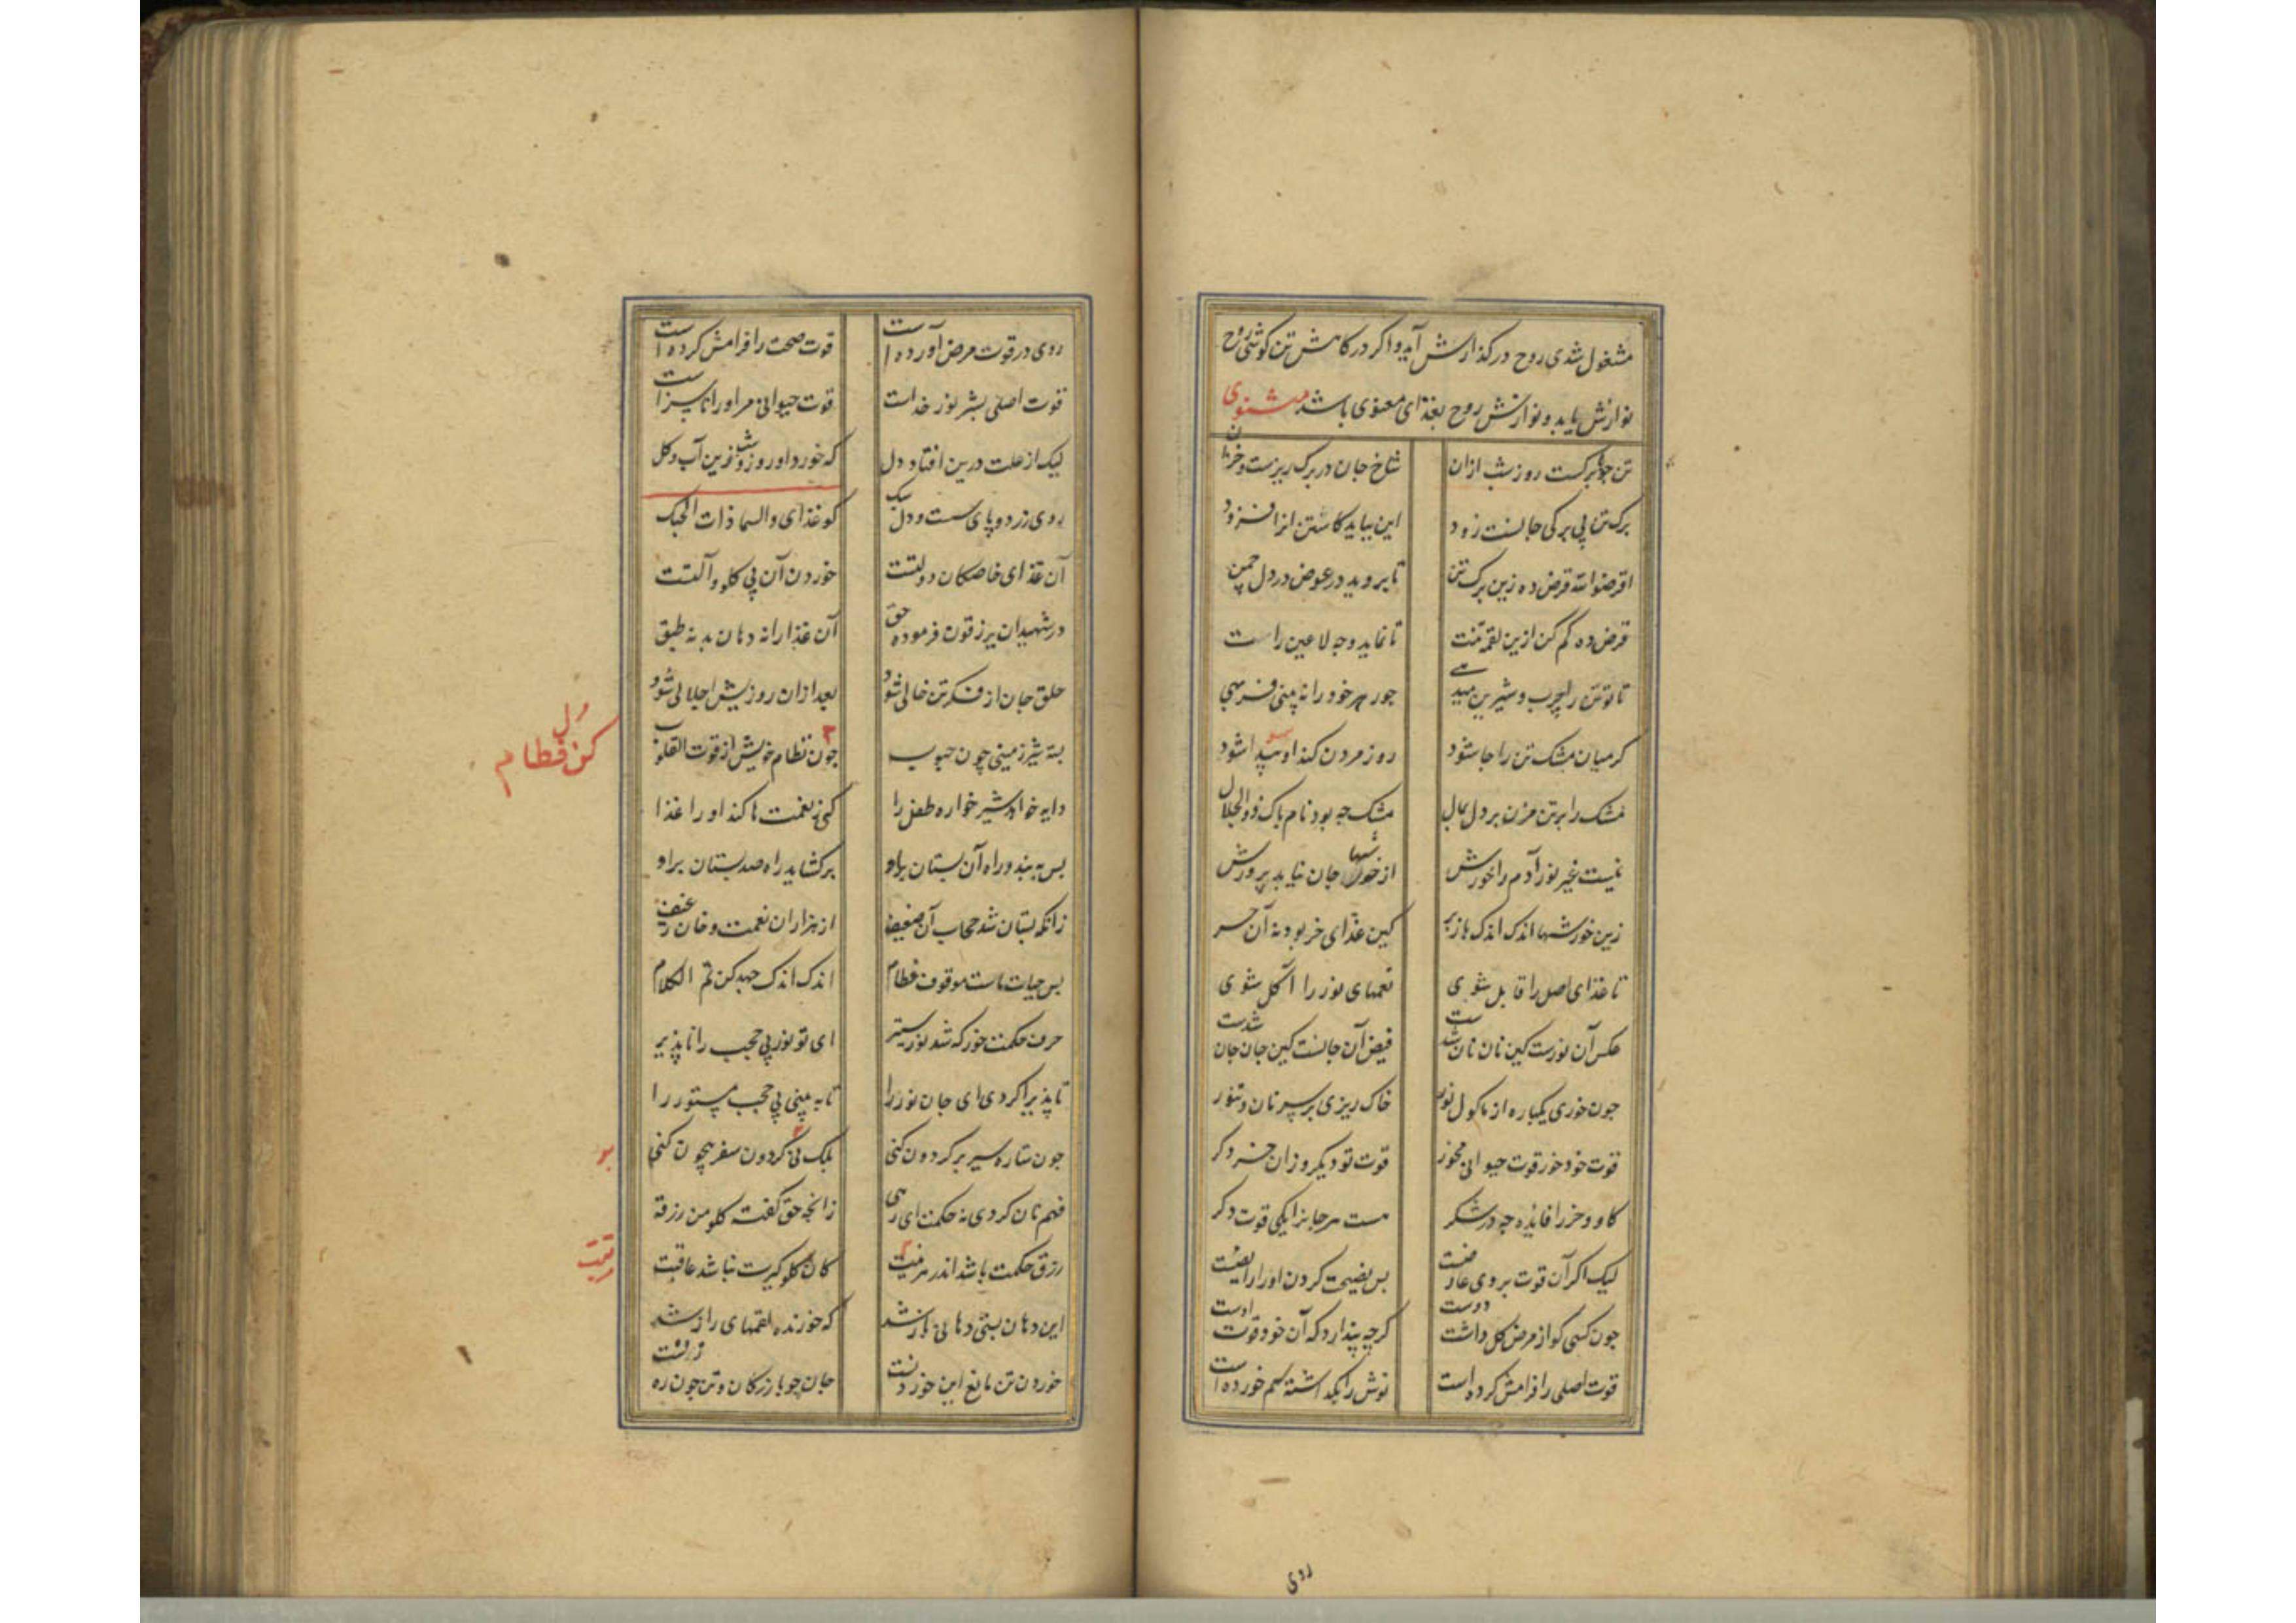 مشغول شدی روح در کذارش آید و اکر در کاهش تن کوشی روح
نوازش یابد و نوازش روح بغذای معنوی باشد مثنوی
تن جو با برکست روز شب ازان شاخ جان در برک ریزست و خزان
برک تن بی برکی جانست زود این بباید کاستن انرا فزود
اقرضوا الله قرض ده زین برک تن تا بروید در عوض در دل چمن
قرض ده کم کن ازین لقمه تنت تا نماید وجه لا عین رات
تا تو تن را چرب و شیرین میدهی جوهر خود را نه بینی فربهی
کر میان مشک تن را جا شود روز مردن کند او پیدا شود
مشک را بر تن مزن بر دل بمال مشک جه بود نام باک ذو الجلال
نیست غیر نور آدم را خورش از خورشها جان نیابد پرورش
زین خورشها اندک اندک باز بر کین غذای خر بود نه آن حر
تا غذای اصل را قابل شوی لقمهای نور را آکل شوی
عکس آن نورست کین نان نان شدست فیض آن جانست کین جان جان شدست
جون خوری یکباره از ماکول نور خاک ریزی بر سر نان و تنور
قوت خود خور قوت حیوانی مخور قوت تو دیکر و زان خر دکر
کاو و خر را فایده چه در شکر هست هر جانرا یکی قوت دکر
لیک اکر آن قوت بر وی عارضست بس نصیحت کردن او را رایضیست
جون کسی کو از مرض کل داشت دوست کرچه پندارد که آن خود قوت اوست
قوت اصلی را فرامش کرده است نوش را بکذاشته سم خورده است
روی
روی در قوت مرض آورده است قوت صحت را فرامش کرده است
قوت اصلی بشر نور خداست قوت حیوانی مر او را ناسزاست
لیک از علت درین افتاد دل که خورد او روز و شب زین آب و کل
روی زرد و پای سست و دل سبک کو غذای والسما ذات الحبک
آن غذای خاصکان دولتست خوردن آن بی کلو و آلتست
در شهیدان یرزقون فرموده حق آن غذا را نه دهان بد نه طبق
حلق جان از فکر تن خالی شود بعد از ان روزیش اجلالی شود
بسته شیر زمینی چون حبوب جون فطام خویش از قوت القلوب
دل
کن فطام
دایه خواهد شیرخواره طفل را کی ز نعمت ها کند او را غذا
بس به بندد راه آن بستان براو برکشاید راه صد بستان براو
زانکه بستان شد حجاب آن ضعیف از هزاران نعمت و خان و رغیف
بس حیات ماست موقوف فطام اندک اندک جهد کن تم الکلام
حرف حکمت خور که شد نور ستیر ای تو نور بی حجب را ناپذیر
تا پذیرا کردی ای جان نور را تا به بینی بی حجب مستور را
جون ستاره سیر بر کردون کنی بلک بی کردون سفر بیچون کنی
فهم نان کردی نه حکمت ای رهی زانچه حق کفت کلو من رزقه
رزق حکمت باشد اندر مرتبت کان کلوکیرت نباشد عاقبت
این دهان بستی دهانی باز شد که خورنده لقمهای راز شد
خوردن تن مانع این خوردنست جان چو بازرکان و تن چون رهزنست